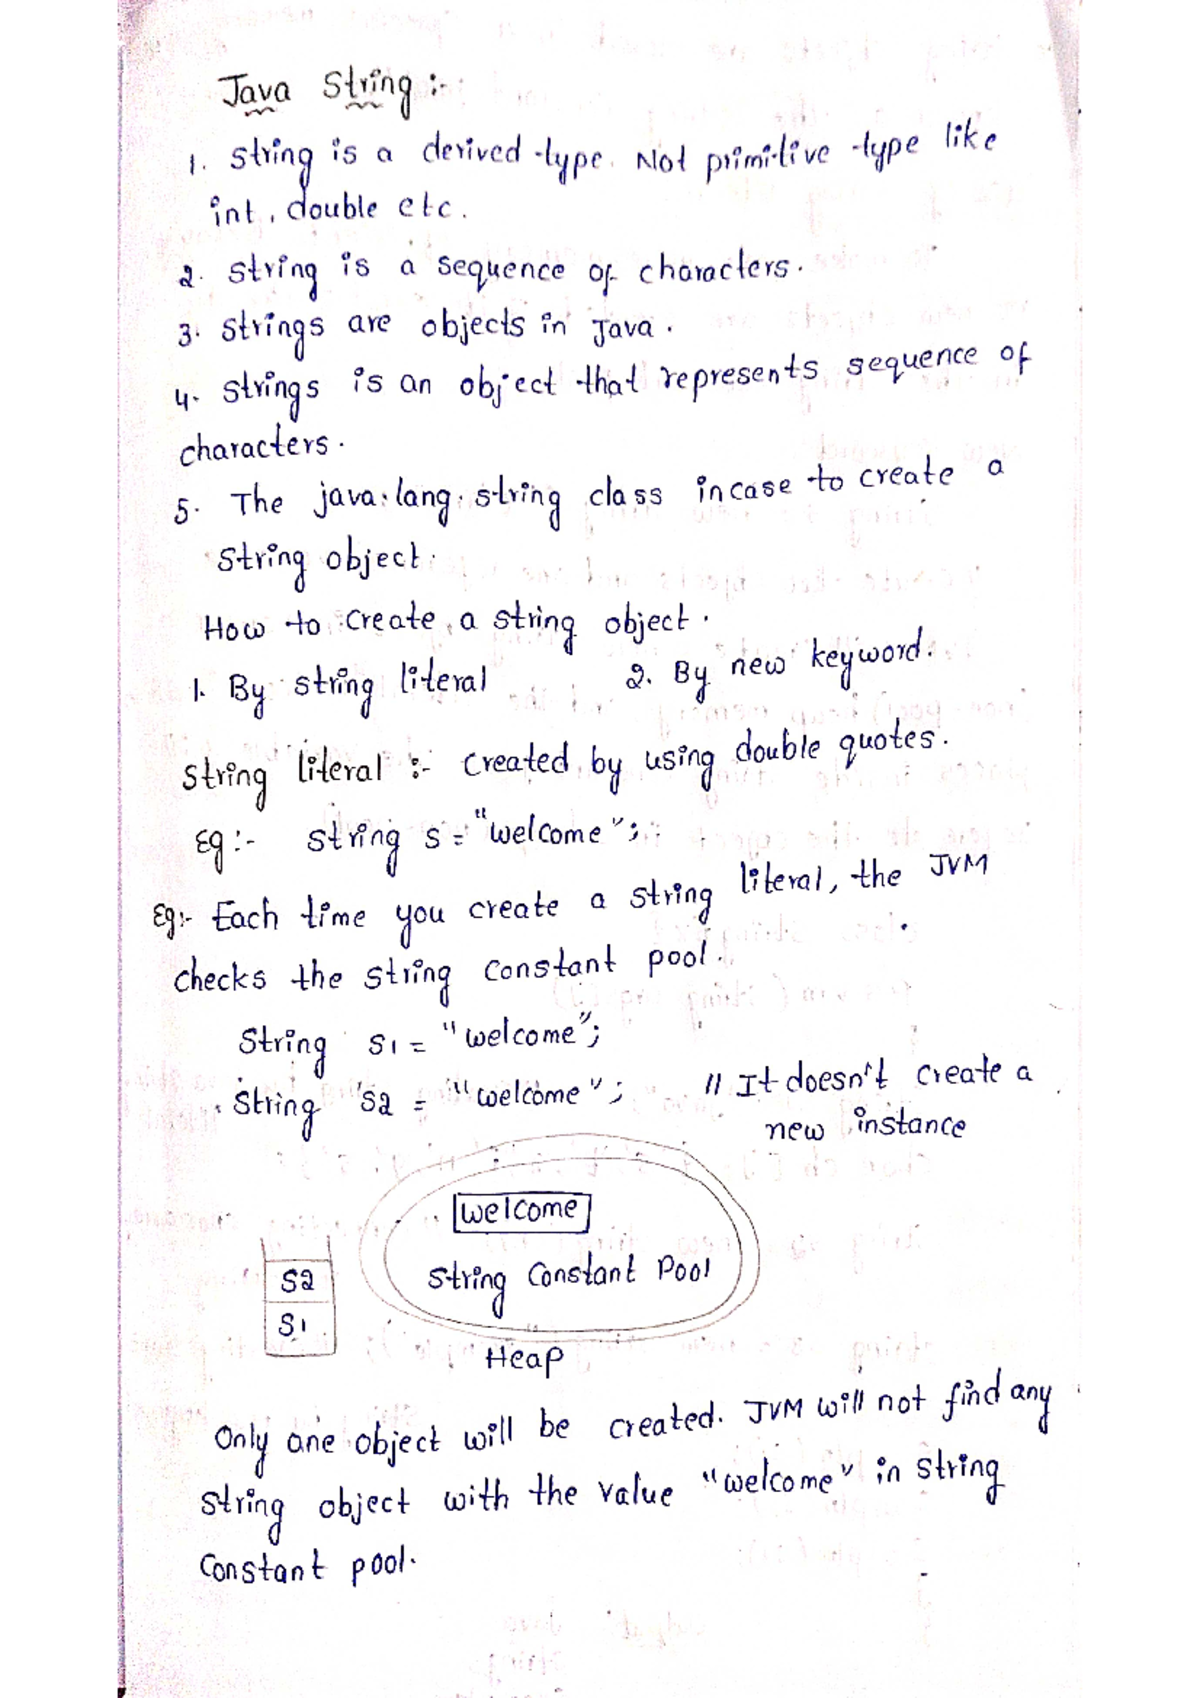 Java String :-
1. string is a derived type. Not primitive type like
int, double etc.
2. string is a sequence of characters.
3. strings are objects in Java.
4. strings is an object that represents sequence of
characters.
5. The java.lang.string class incase to create a
string object.
How to create a string object.
1. By string literal 2. By new keyword.
string literal :- created by using double quotes.
Eg:- string s = "welcome";
Eg:- Each time you create a string literal, the JVM
checks the string constant pool.
String s1 = "welcome";
String s2 = "welcome"; // It doesn't create a
new instance
welcome
s2
string Constant Pool
s1
Heap
Only one object will be created. JVM will not find any
string object with the value "welcome" in string
Constant pool.